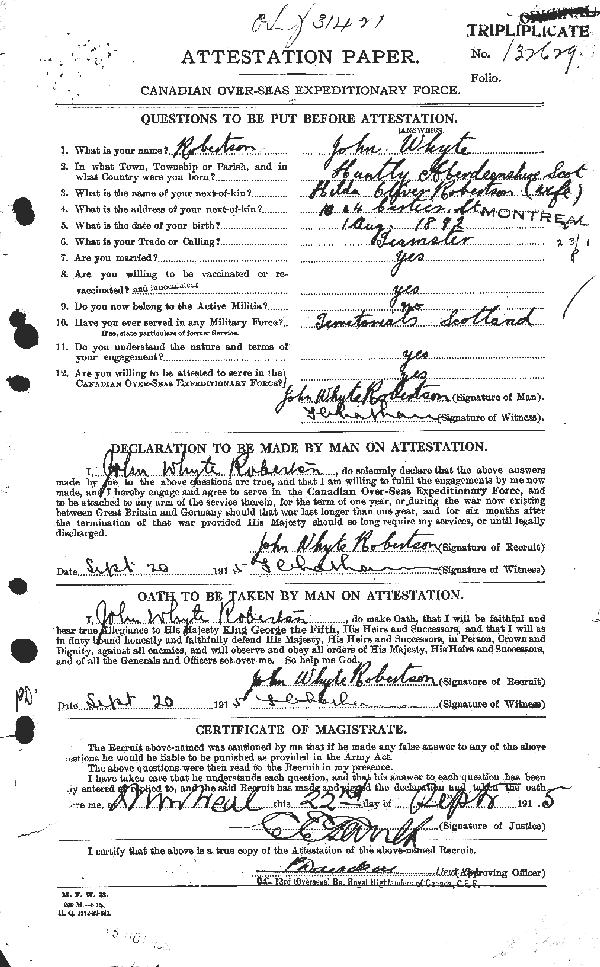 31421
ORIGINAL
TRIPLIPLICATE
No. 132629.
Folio.
ATTESTATION PAPER.
CANADIAN OVER-SEAS EXPEDITIONARY FORCE.
QUESTIONS TO BE PUT BEFORE ATTESTATION.
(ANSWERS)
1. What is your name? Robertson John Whyte
2. In what Town, Township or Parish, and in
what Country were you born? Huntly Aberdeenshire Scot
3. What is the name of your next-of-kin? Hilda Oliver Robertson (wife)
4. What is the address of your next-of-kin? St MONTREAL
5. What is the date of your birth? 1 Aug. 1892
6. What is your Trade or Calling? Teamster
7. Are you married? yes
8. Are you willing to be vaccinated or re-
vaccinated? yes
9. Do you now belong to the Active Militia? no
10. Have you ever served in any Military Force? Territorials Scotland
If so, state particulars of former Service.
11. Do you understand the nature and terms of
your engagement? yes
12. Are you willing to be attested to serve in the
CANADIAN OVER-SEAS EXPEDITIONARY FORCE? yes
John Whyte Robertson (Signature of Man).
(Signature of Witness).
DECLARATION TO BE MADE BY MAN ON ATTESTATION.
I, John Whyte Robertson, do solemnly declare that the above answers
made by me to the above questions are true, and that I am willing to fulfil the engagements by me now
made, and I hereby engage and agree to serve in the Canadian Over-Seas Expeditionary Force, and
to be attached to any arm of the service therein, for the term of one year, or during the war now existing
between Great Britain and Germany should that war last longer than one year, and for six months after
the termination of that war provided His Majesty should so long require my services, or until legally
discharged.
John Whyte Robertson (Signature of Recruit)
Date Sept 20 1915 (Signature of Witness)
OATH TO BE TAKEN BY MAN ON ATTESTATION.
I, John Whyte Robertson, do make Oath, that I will be faithful and
bear true Allegiance to His Majesty King George the Fifth, His Heirs and Successors, and that I will as
in duty bound honestly and faithfully defend His Majesty, His Heirs and Successors, in Person, Crown and
Dignity, against all enemies, and will observe and obey all orders of His Majesty, His Heirs and Successors,
and of all the Generals and Officers set over me. So help me God.
John Whyte Robertson (Signature of Recruit)
Date Sept 20 1915 (Signature of Witness)
CERTIFICATE OF MAGISTRATE.
The Recruit above-named was cautioned by me that if he made any false answer to any of the above
questions he would be liable to be punished as provided in the Army Act.
The above questions were then read to the Recruit in my presence.
I have taken care that he understands each question, and that his answer to each question has been
duly entered as replied to, and the said Recruit has made and signed the declaration and taken the oath
before me, at Montreal this 22nd day of Sept 1915
(Signature of Justice)
I certify that the above is a true copy of the Attestation of the above-named Recruit.
(Approving Officer)
73rd (Overseas) Bn. Royal Highlanders of Canada, C.E.F.
M. F. W. 23.